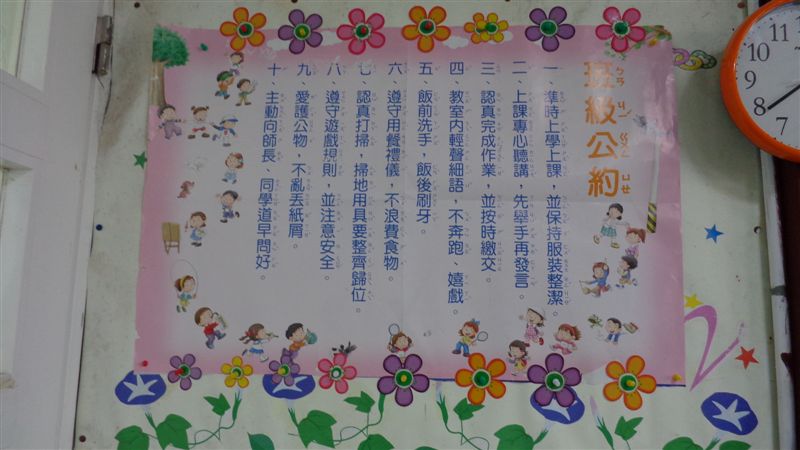 班級公約
一、準時上學上課，並保持服裝整潔。
二、上課專心聽講，先舉手再發言。
三、認真完成作業，並按時繳交。
四、教室內輕聲細語，不奔跑、嬉戲。
五、飯前洗手，飯後刷牙。
六、遵守用餐禮儀，不浪費食物。
七、認真打掃，掃地用具要整齊歸位。
八、遵守遊戲規則，並注意安全。
九、愛護公物，不亂丟紙屑。
十、主動向師長、同學道早問好。
11
10
9
8
7